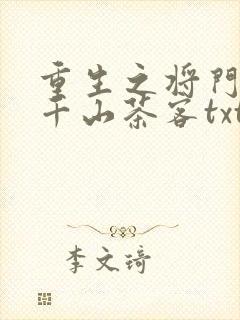 重生之将门
千山茶客txt
李文琦